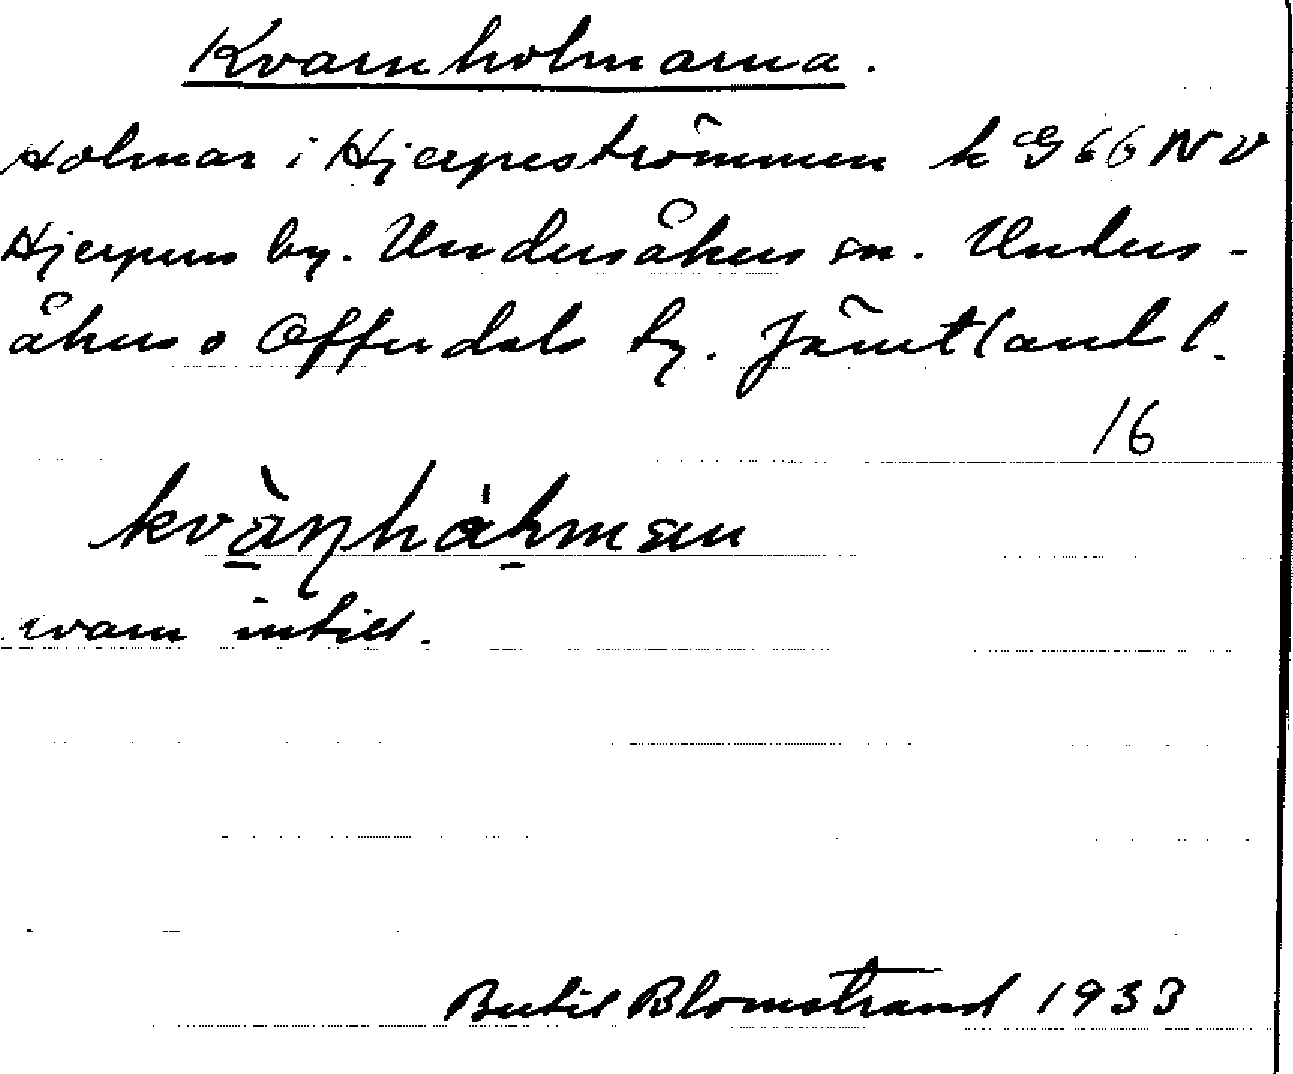 Kvarnholmarna.
Holmar i Hjerpeströmmen k G 66 NV
Hjerpens by. Undersåkers sn. Unders-
åkers o Offerdals tg. Jämtland l.
16
kvàṇhȧhmæn
kvarn intill.
Bertil Blomstrand 1933